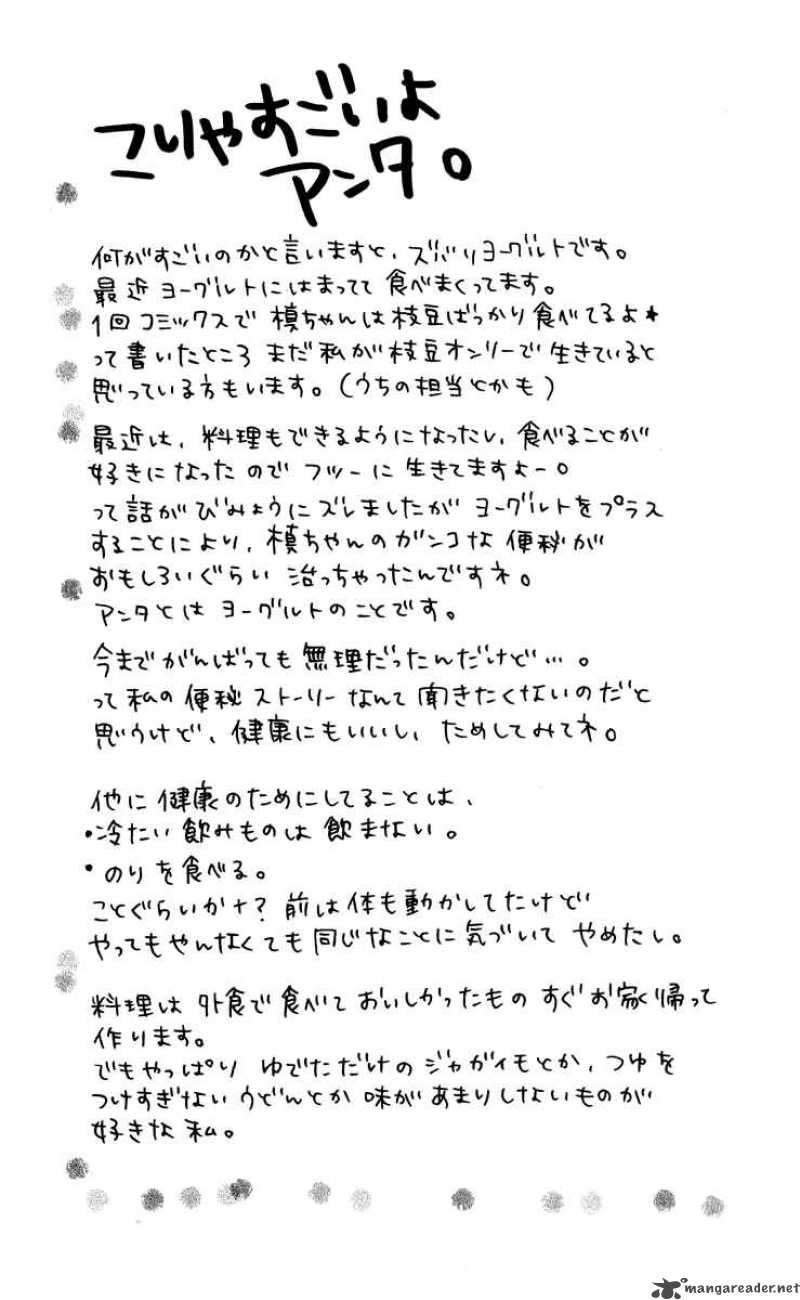 こりゃすごいよ
アンタ。
何がすごいのかと言いますと、ズバリヨーグルトです。
最近ヨーグルトにはまってて食べまくってます。
1回コミックスで槙ちゃんは枝豆ばっかり食べてるよ★
って書いたところまだ私が枝豆オンリーで生きていると
思っている方もいます。(うちの担当とかも)
最近は、料理もできるようになったし、食べることが
好きになったのでフツーに生きてますよー。
って話がびみょうにズレましたがヨーグルトをプラス
することにより、槙ちゃんのガンコな便秘が
おもしろいぐらい治っちゃったんですネ。
アンタとはヨーグルトのことです。
今までがんばっても無理だったんだけど…。
って私の便秘ストーリーなんて聞きたくないのだと
思うけど、健康にもいいし、ためしてみてネ。
他に健康のためにしてることは、
・冷たい飲みものは飲まない。
・のりを食べる。
ことぐらいかナ?前は体も動かしてたけど
やってもやんなくても同じなことに気づいてやめたし。
料理は外食で食べておいしかったものすぐお家帰って
作ります。
でもやっぱりゆでただけのジャガイモとか、つゆを
つけすぎないうどんとか味があまりしないものが
好きな私。
mangareader.net